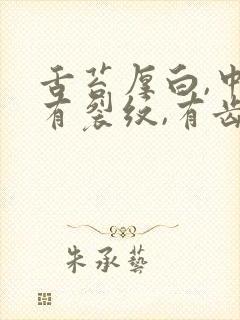 舌苔厚白,中
有裂纹,有齿
朱承艺